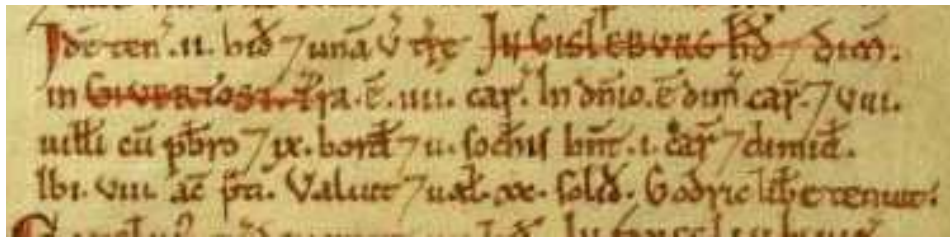 Idē ten̄ .ii. hid̄ 7 unā v̄ træ IN GISLEBURG HD̄ 7 dim̄.
in GIVERTOST. T̄ra.ē.iiii. car̄. In dn̄io.ē dim̄ car̄. 7 viii.
uilli cū pb̄ro 7 ix. bord̄ 7 ii. sochis hn̄t .i. car̄ 7 dimid̄.
Ibi. viii. ac̄ p̄ti. Valuit 7 ual̄. xx. solid̄. Godric libe tenuit.